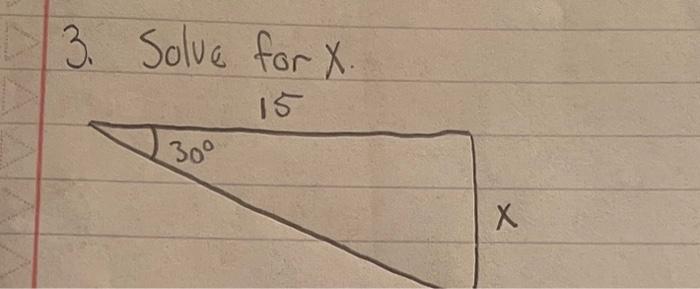 3. Solve for X.
15
30°
X